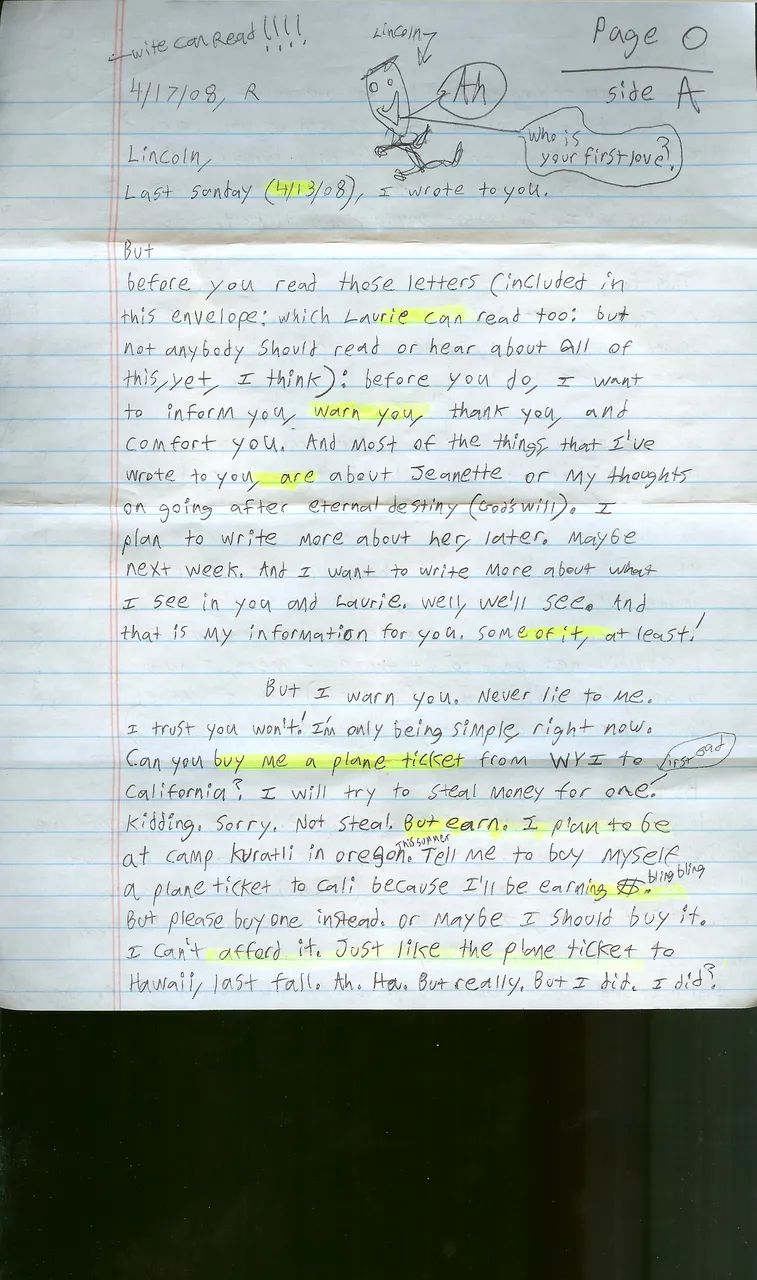 wife can Read!!!!
Lincoln
Page 0
side A
4/17/08, R
Ah
Who is
your first love?
Lincoln,
Last Sunday (4/13/08), I wrote to you.
But
before you read those letters (included in
this envelope: which Laurie can read too: but
not anybody should read or hear about all of
this, yet, I think): before you do, I want
to inform you, warn you, thank you, and
comfort you. And most of the things that I've
wrote to you, are about Jeanette or my thoughts
on going after eternal destiny (God's will). I
plan to write more about her, later. Maybe
next week. And I want to write more about what
I see in you and Laurie. Well, we'll see. And
that is my information for you. Some of it, at least!
But I warn you. Never lie to me.
I trust you won't! I'm only being simple, right now.
Can you buy me a plane ticket from WYI to
California? I will try to steal money for one.
Kidding. Sorry. Not steal. But earn. I plan to be
at camp Kuratli in oregon. This summer Tell me to buy myself
a plane ticket to cali because I'll be earning $. bling bling
But please buy one instead. or maybe I should buy it.
I can't afford it. Just like the plane ticket to
Hawaii, last fall. Ah. Ha. But really. But I did. I did?